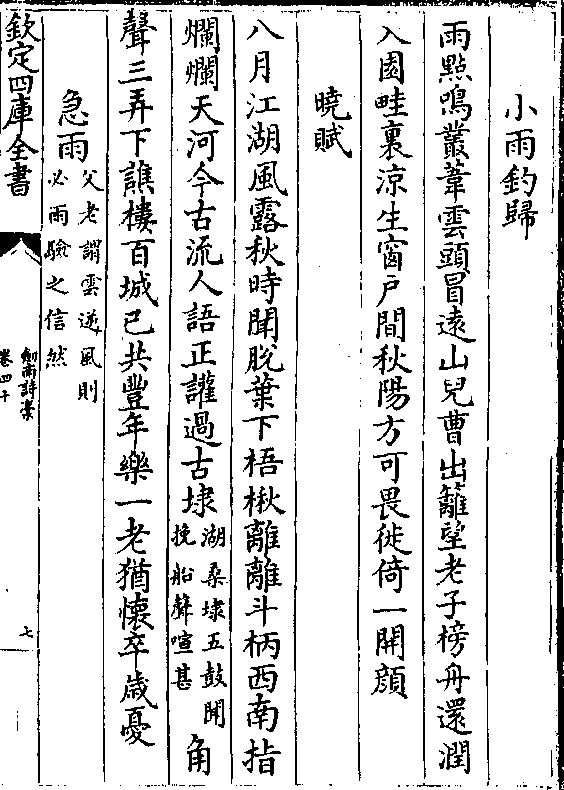 小雨釣歸
雨點鳴叢葦雲頭冒遠山兒曹出籬望老子榜舟還潤
入園畦裏涼生窗戶間秋陽方可畏徙倚一開顔
曉賦
八月江湖風露秋時聞脫葉下梧楸離離斗柄西南指
爛爛天河今古流人語正讙過古埭湖桑埭五鼓聞挽船聲喧甚角
聲三弄下譙樓百城已共豐年樂一老猶懷卒歲憂
急雨父老謂雲逆風則必雨驗之信然
欽定四庫全書
劍南詩藁
卷四十
七